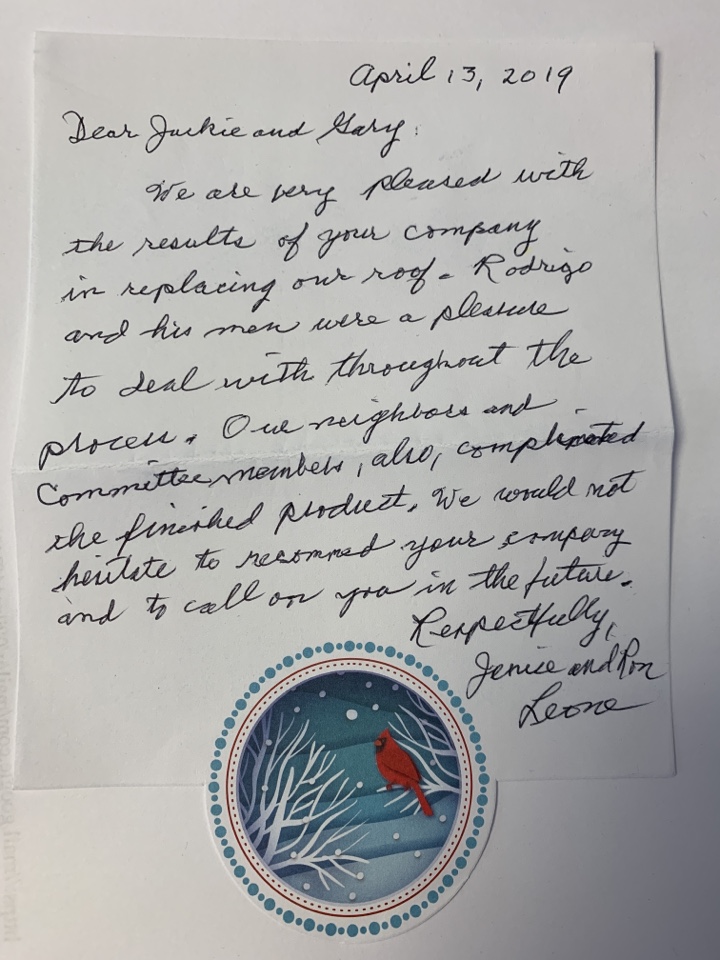 April 13, 2019
Dear Jackie and Gary:
We are very pleased with
the results of your company
in replacing our roof. Rodrigo
and his men were a pleasure
to deal with throughout the
process. Our neighbors and
Committee members, also, complimented
the finished product. We would not
hesitate to recommed your company
and to call on you in the future.
Respectfully,
Janice and Ron
Leone